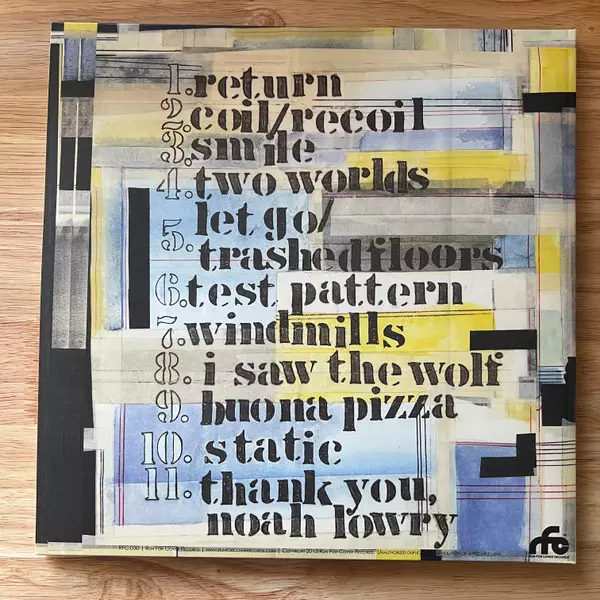 1. return
2. coil/recoil
3. smile
4. two worlds
5. let go/
trashedfloors
6. test pattern
7. windmills
8. i saw the wolf
9. buona pizza
10. static
11. thank you,
noah lowry
rfc
RUN FOR COVER RECORDS
RFC:030 | RUN FOR COVER RECORDS | WWW.RUNFORCOVERRECORDS.COM | COPYRIGHT 2010 RUN FOR COVER RECORDS. UNAUTHORIZED